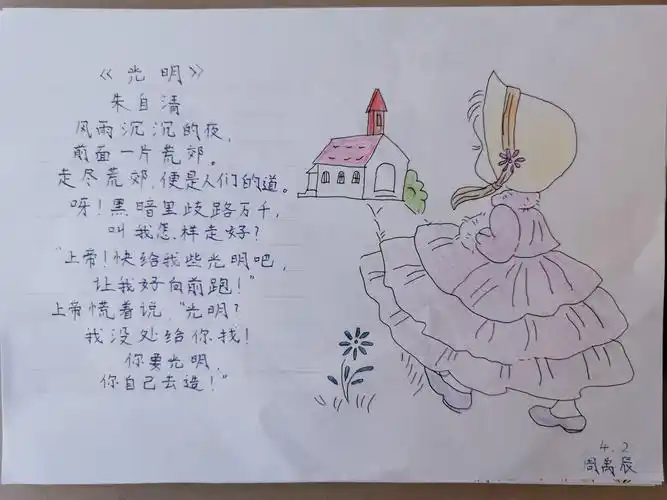 《光明》
朱自清
风雨沉沉的夜，
前面一片荒郊。
走尽荒郊，便是人们的道。
呀！黑暗里歧路万千，
叫我怎样走好？
“上帝！快给我些光明吧，
让我好向前跑！”
上帝慌着说，“光明？
我没处给你找！
你要光明，
你自己去造！”
4.2
周禹辰